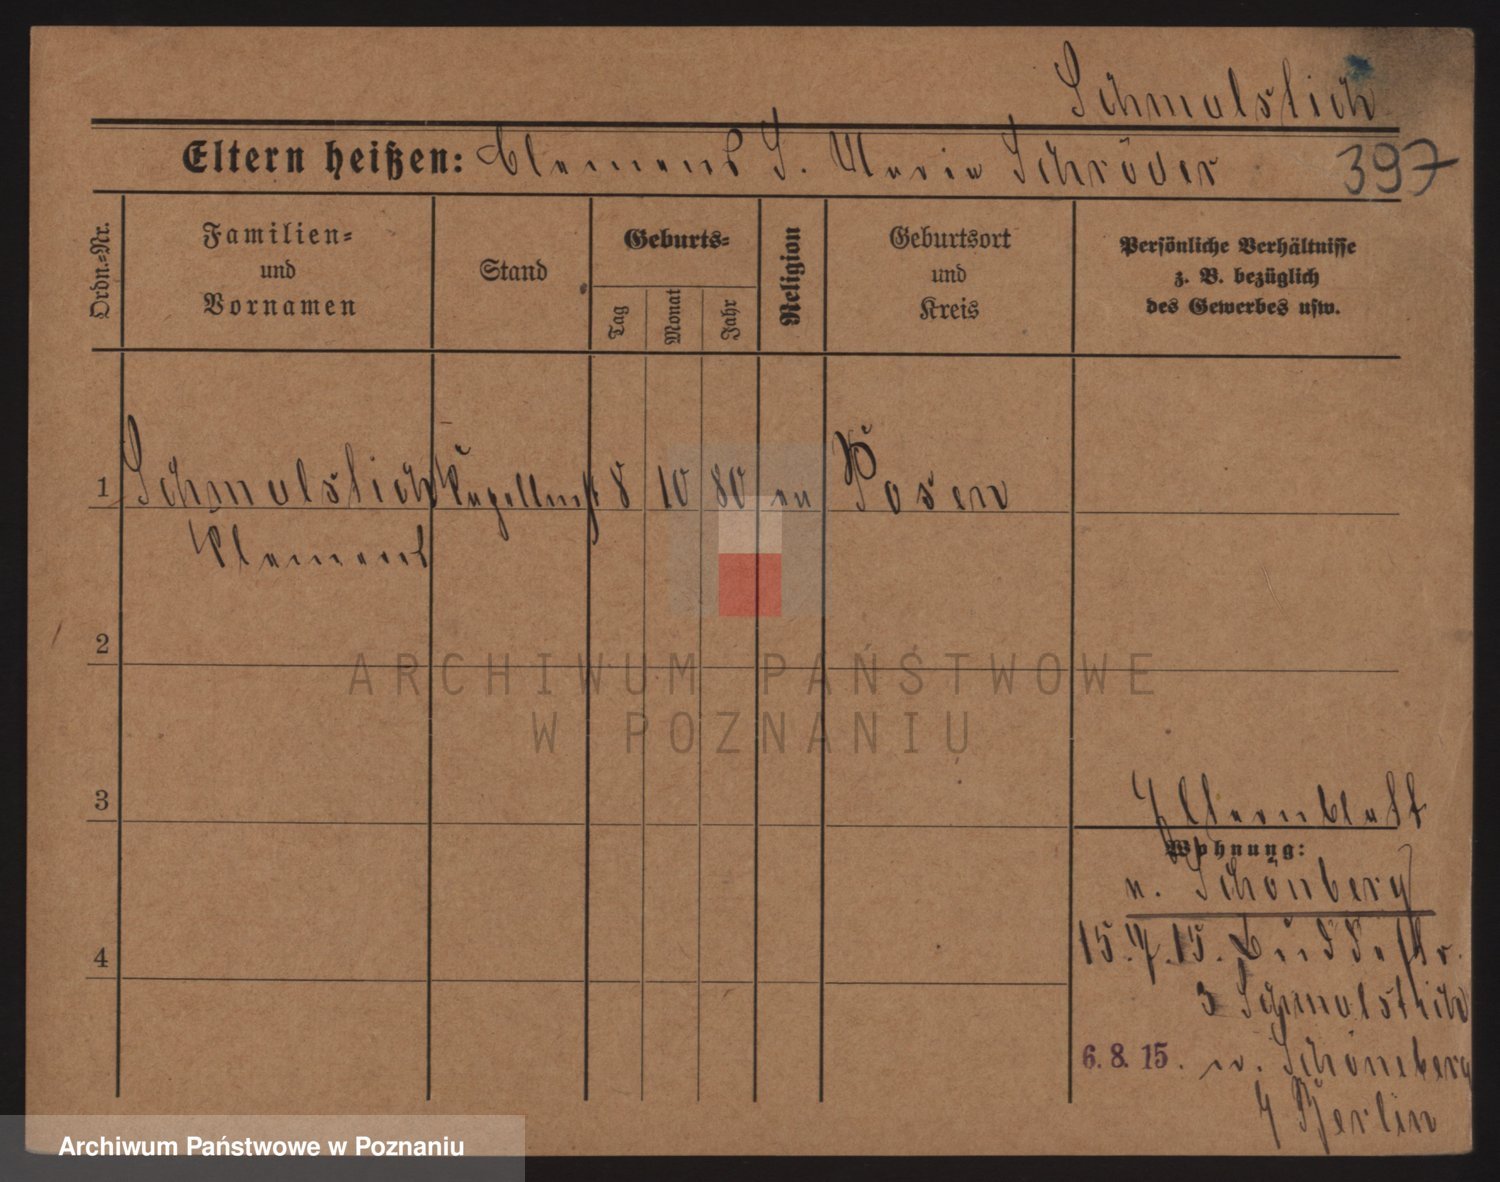 Schmolslich
Eltern heißen: Clemens S. Maria Schröder
397
Ordn.-Nr.
Familien-
und
Vornamen
Stand
Geburts-
Tag
Monat
Jahr
Religion
Geburtsort
und
Kreis
Persönliche Verhältnisse
z. B. bezüglich
des Gewerbes usw.
1 Schmolslich 8 10 80 ev Posen
Klemens
2
ARCHIWUM PAŃSTWOWE
W POZNANIU
3
Elternblatt
Wohnung:
n. Schönberg
4
15. 7. 15. Buddestr.
3 Schmolslich
6.8.15. n. Schöneberg
Berlin
Archiwum Państwowe w Poznaniu